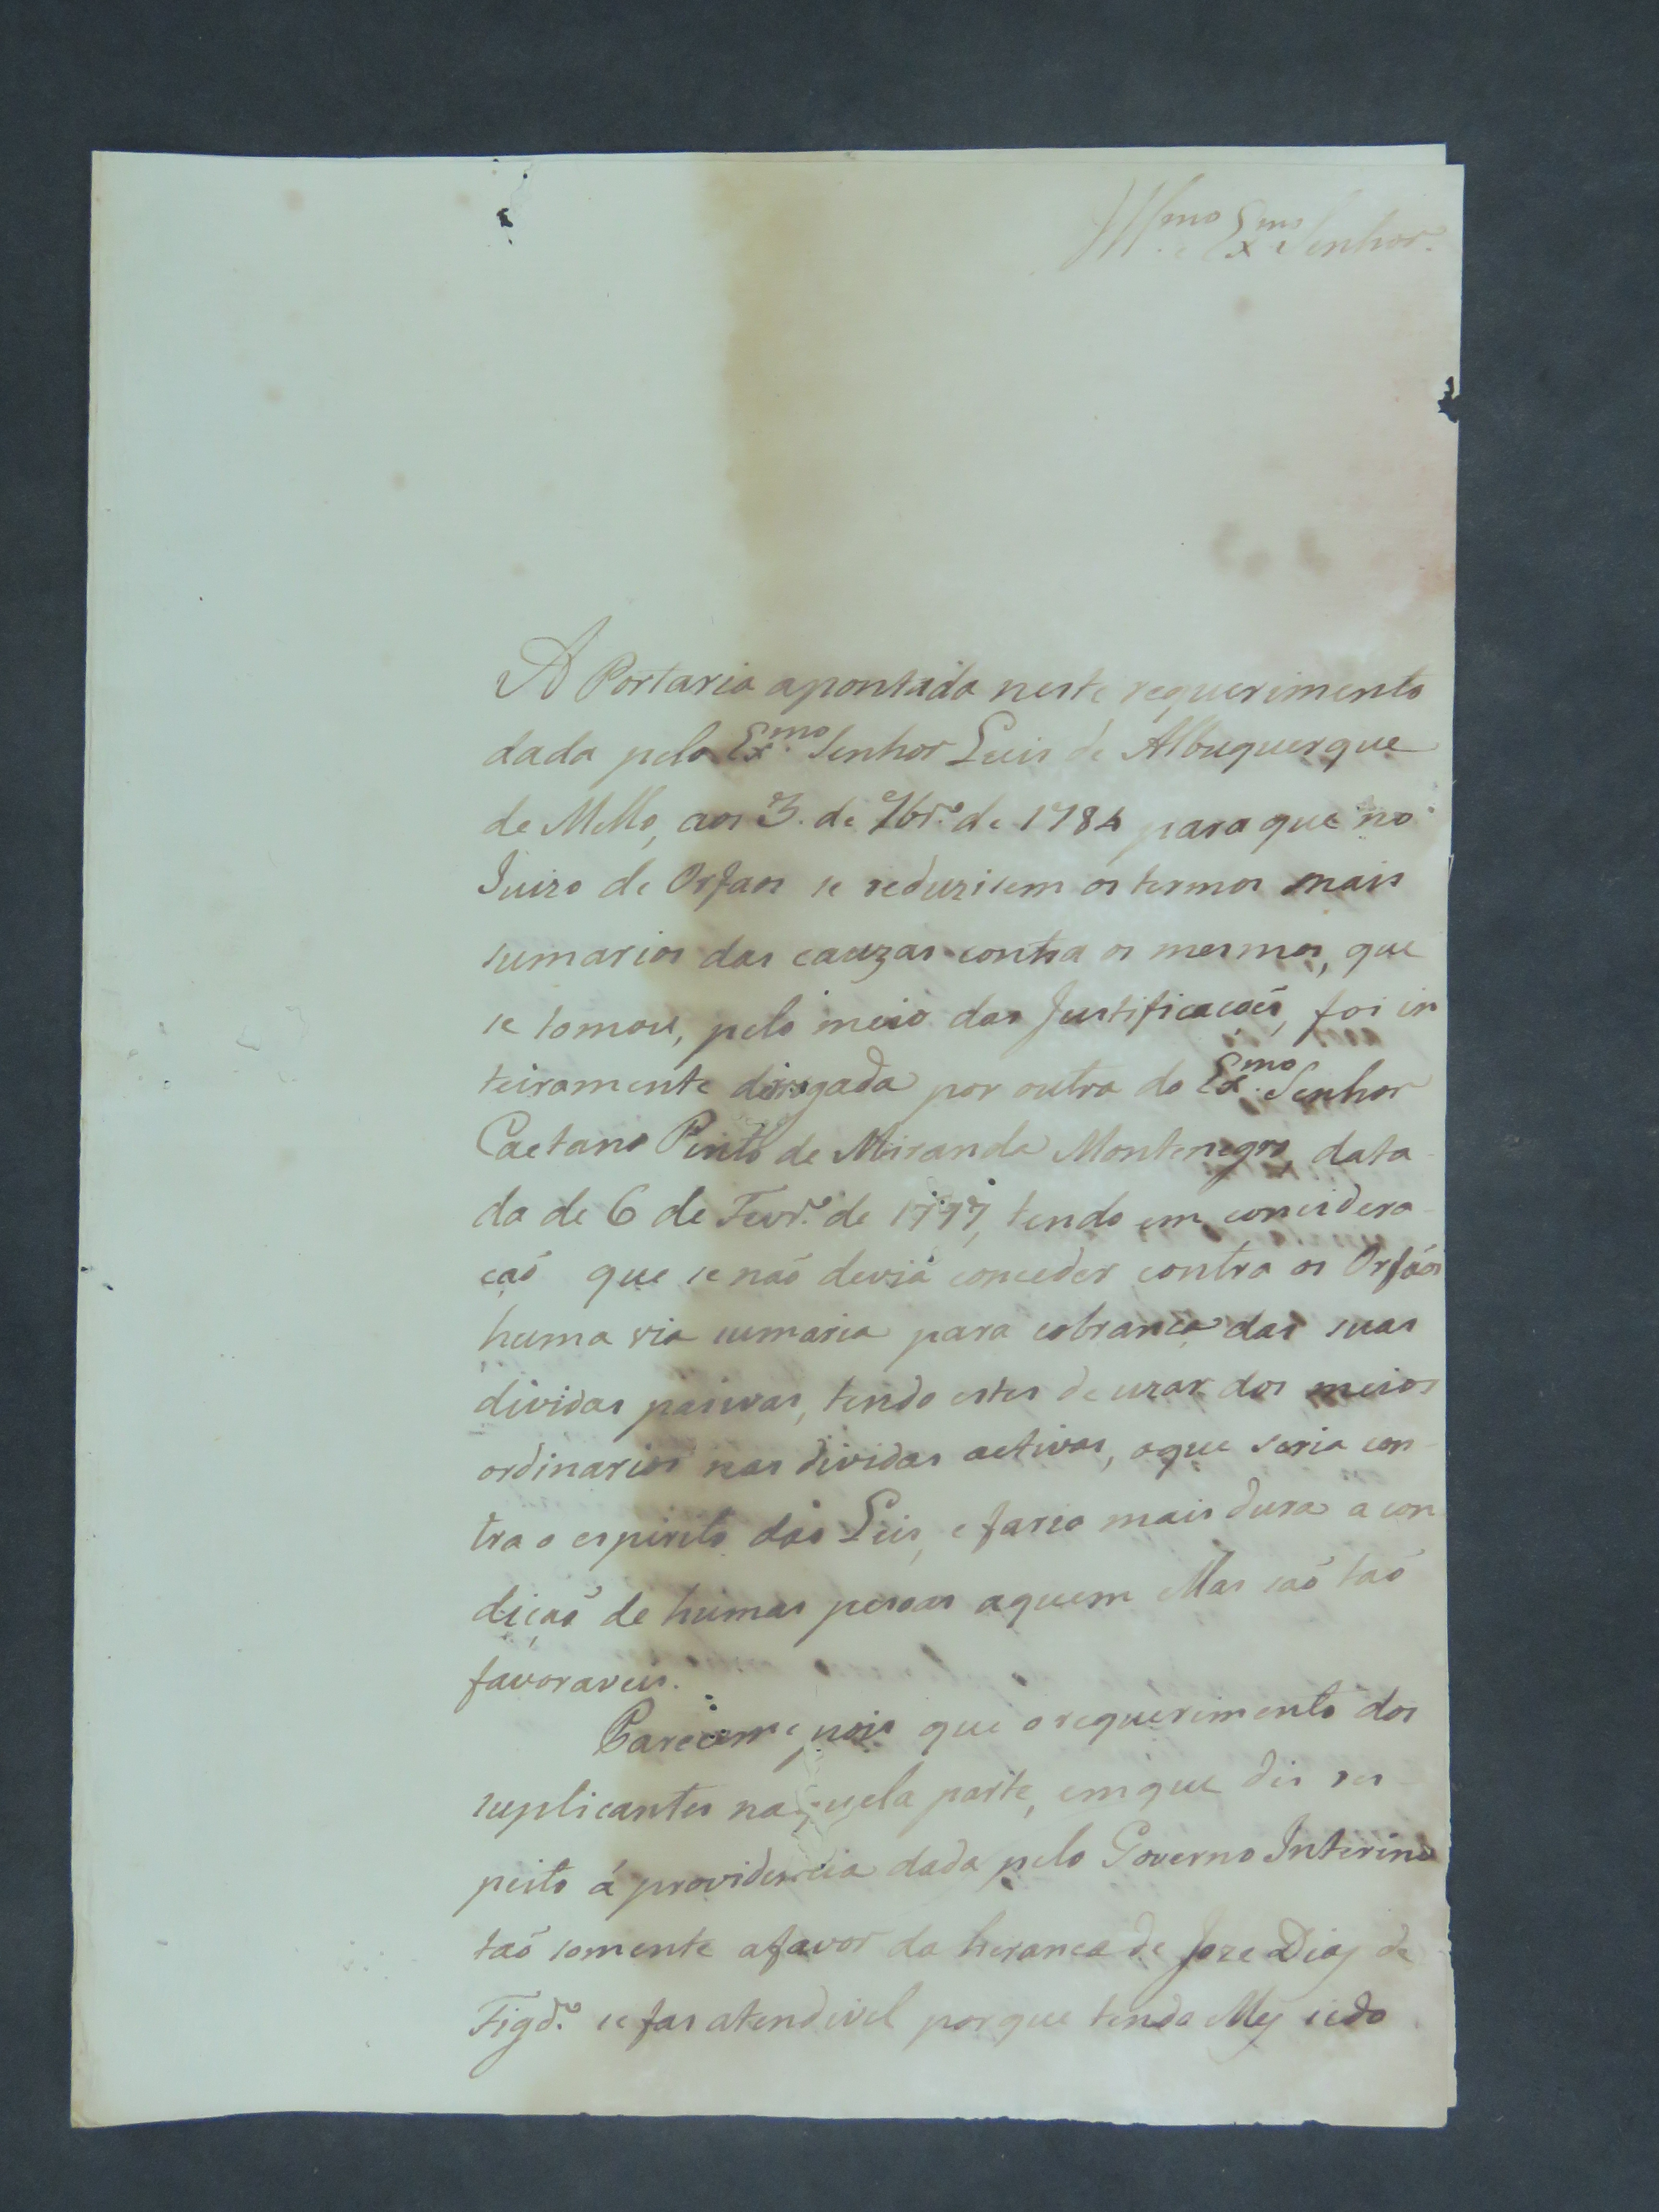 Ill.mo e Ex.mo Senhor.
A Portaria apontada neste requerimento
dada pelo Ex.mo Senhor Luis de Albuquerque
de Mello, aos 3. de 7br.o de 1784 para que no
Juizo de Orfaos se reduzisem os termos mais
sumarios das cauzas contra os mesmos, que
se tomou, pelo meio das Justificaçoẽs, foi in
teiramente dirogada por outra do Ex.mo Senhor
Caetano Pinto de Miranda Montenegro, data-
da de 6 de Fevr.o de 1797, tendo em considera-
çaõ que se naõ devia conceder contra os Orfaõs
huma via sumaria para cobrança das suas
dividas pasivas, tendo estes de uzar dos meios
ordinarios nas dividas activas, oque seria con-
tra o espirito das Leis, e faria mais dura a con
diçaõ de humas pesoas aquem Ellas saõ taõ
favoraveis.
Pareceme pois que o requerimento dos
suplicantes naquela parte, emque dis res-
peito á providencia dada pelo Governo Interino
taõ somente afavor da herança de Joze Dias de
Figd.o se fas atendivel porque tendo Elles sido